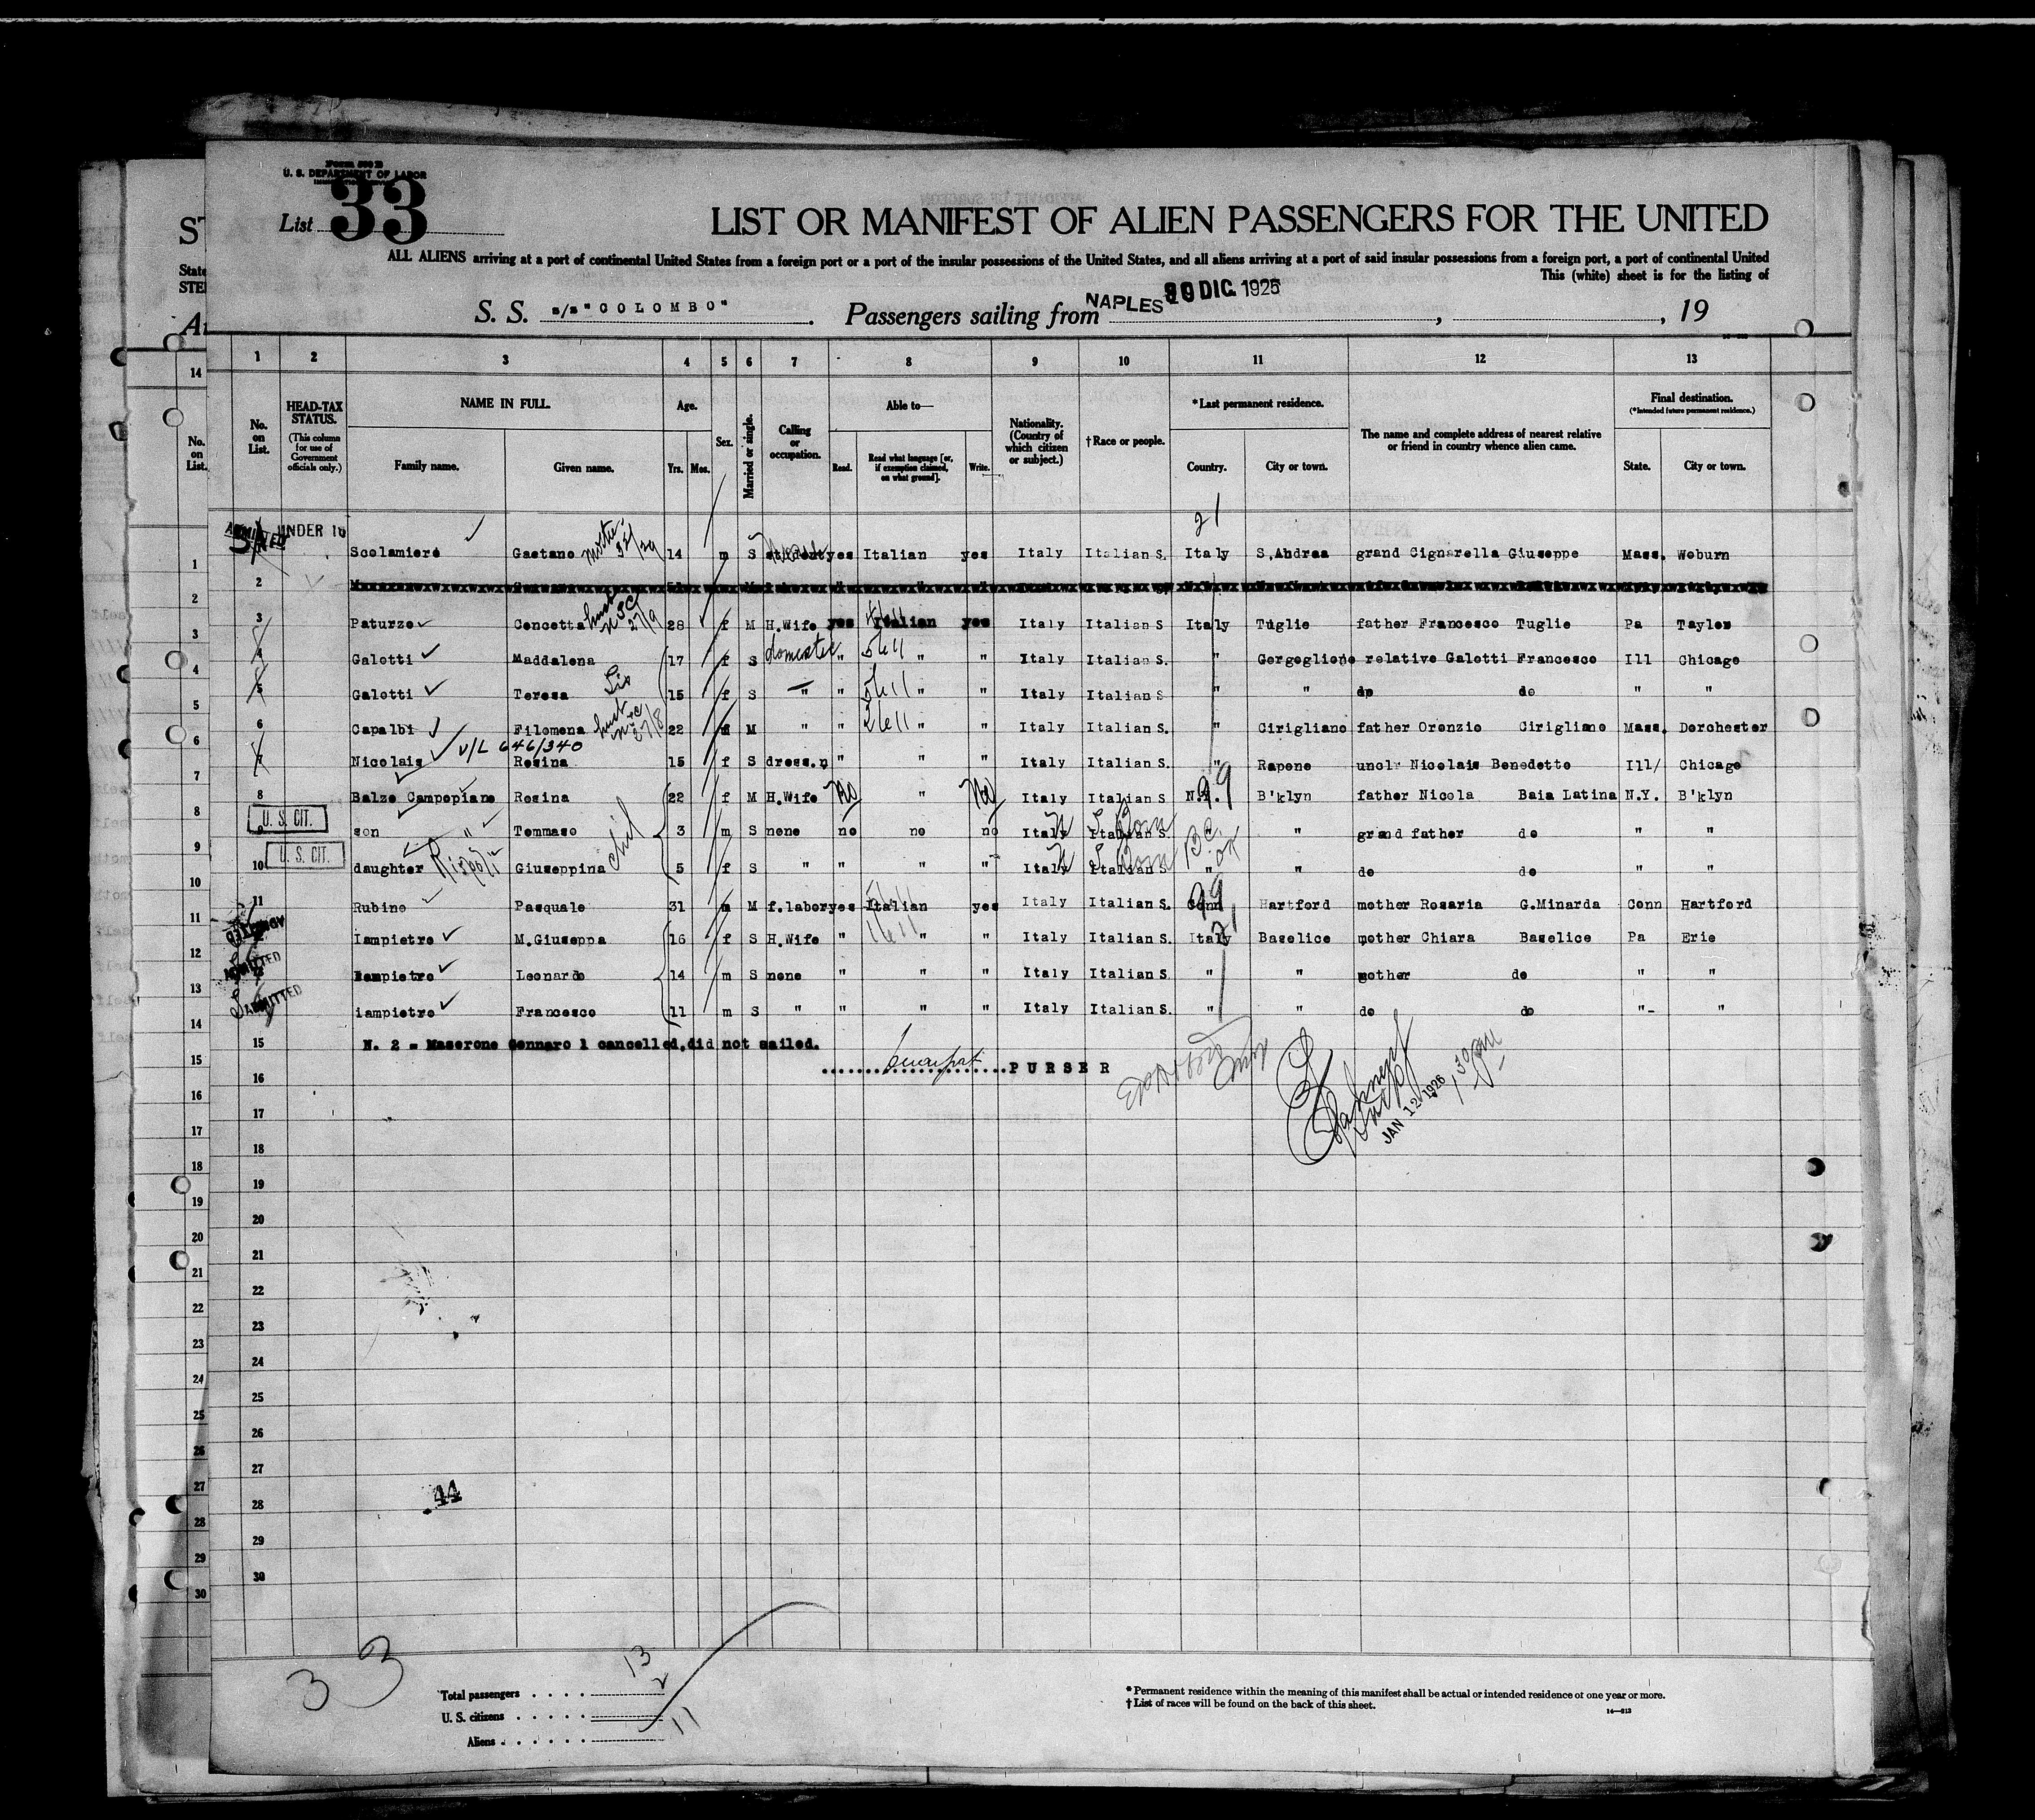 Form 500 B
U. S. DEPARTMENT OF LABOR
List 33
LIST OR MANIFEST OF ALIEN PASSENGERS FOR THE UNITED
ALL ALIENS arriving at a port of continental United States from a foreign port or a port of the insular possessions of the United States, and all aliens arriving at a port of said insular possessions from a foreign port, a port of continental United
This (white) sheet is for the listing of
S. S. s/s "COLOMBO". Passengers sailing from NAPLES DIC. 1925, , 19
1 2 3 4 5 6 7 8 9 10 11 12 13
No. on List. HEAD-TAX STATUS. (This column for use of Government officials only.) NAME IN FULL. Age. Sex. Married or single. Calling or occupation. Able to— Nationality. (Country of which citizen or subject.) † Race or people. * Last permanent residence. The name and complete address of nearest relative or friend in country whence alien came. Final destination. (*Intended future permanent residence.)
Family name. Given name. Yrs. Mos. Read. Read what language [or, if exemption claimed, on what ground]. Write. Country. City or town. State. City or town.
21
ADMITTED UNDER 16
1 Scolamiere Gaetano mother 14 m S student yes Italian yes Italy Italian S. Italy S.Andrea grand Cignarella Giuseppe Mass. Woburn
2
3 Paturzo Concetta 27/9 28 f M H.Wife yes Italian yes Italy Italian S Italy Tuglie father Francesco Tuglie Pa Taylor
4 Galotti Maddalena 17 f S domestic " " " Italy Italian S. " Gorgoglione relative Galotti Francesco Ill Chicago
5 Galotti Teresa Sis 15 f S " " " " Italy Italian S " " do do " "
6 Capalbi Filomena 27/8 22 f M " " " " Italy Italian S. " Cirigliano father Oronzio Cirigliano Mass. Dorchester
V/L 646/340
7 Nicolais Rosina 15 f S dress.n " " " Italy Italian S. " Rapone uncle Nicolais Benedetto Ill/ Chicago
8 Balzo Campopiano Rosina 22 f M H.Wife No " No Italy Italian S N.Y. 99 B'klyn father Nicola Baia Latina N.Y. B'klyn
U. S. CIT.
9 son " Tommaso 3 m S none no no no Italy Italian S. " grand father do " "
U. S. CIT.
10 daughter Giuseppina 5 f S " " " " Italy Italian S. " " do do " "
11 Rubino Pasquale 31 m M f.labor yes Italian yes Italy Italian S. Conn 99 Hartford mother Rosaria G.Minarda Conn Hartford
ADMITTED
12 Iampietro M.Giuseppa 16 f S H.Wife " " " Italy Italian S. Italy Baselice mother Chiara Baselice Pa Erie
ADMITTED
13 Iampietro Leonardo 14 m S none " " " Italy Italian S. " " mother do " "
ADMITTED
14 iampietro Francesco 11 m S " " " " Italy Italian S. " " do do "- "
15 N. 2 = Maserone Gennaro 1 cancelled,did not sailed.
PURSER
JAN 12 1926
16
17
18
19
20
21
22
23
24
25
26
27
28
29
30
44
33
Total passengers 13
2
U. S. citizens
Aliens 11
* Permanent residence within the meaning of this manifest shall be actual or intended residence of one year or more.
† List of races will be found on the back of this sheet.
14—313